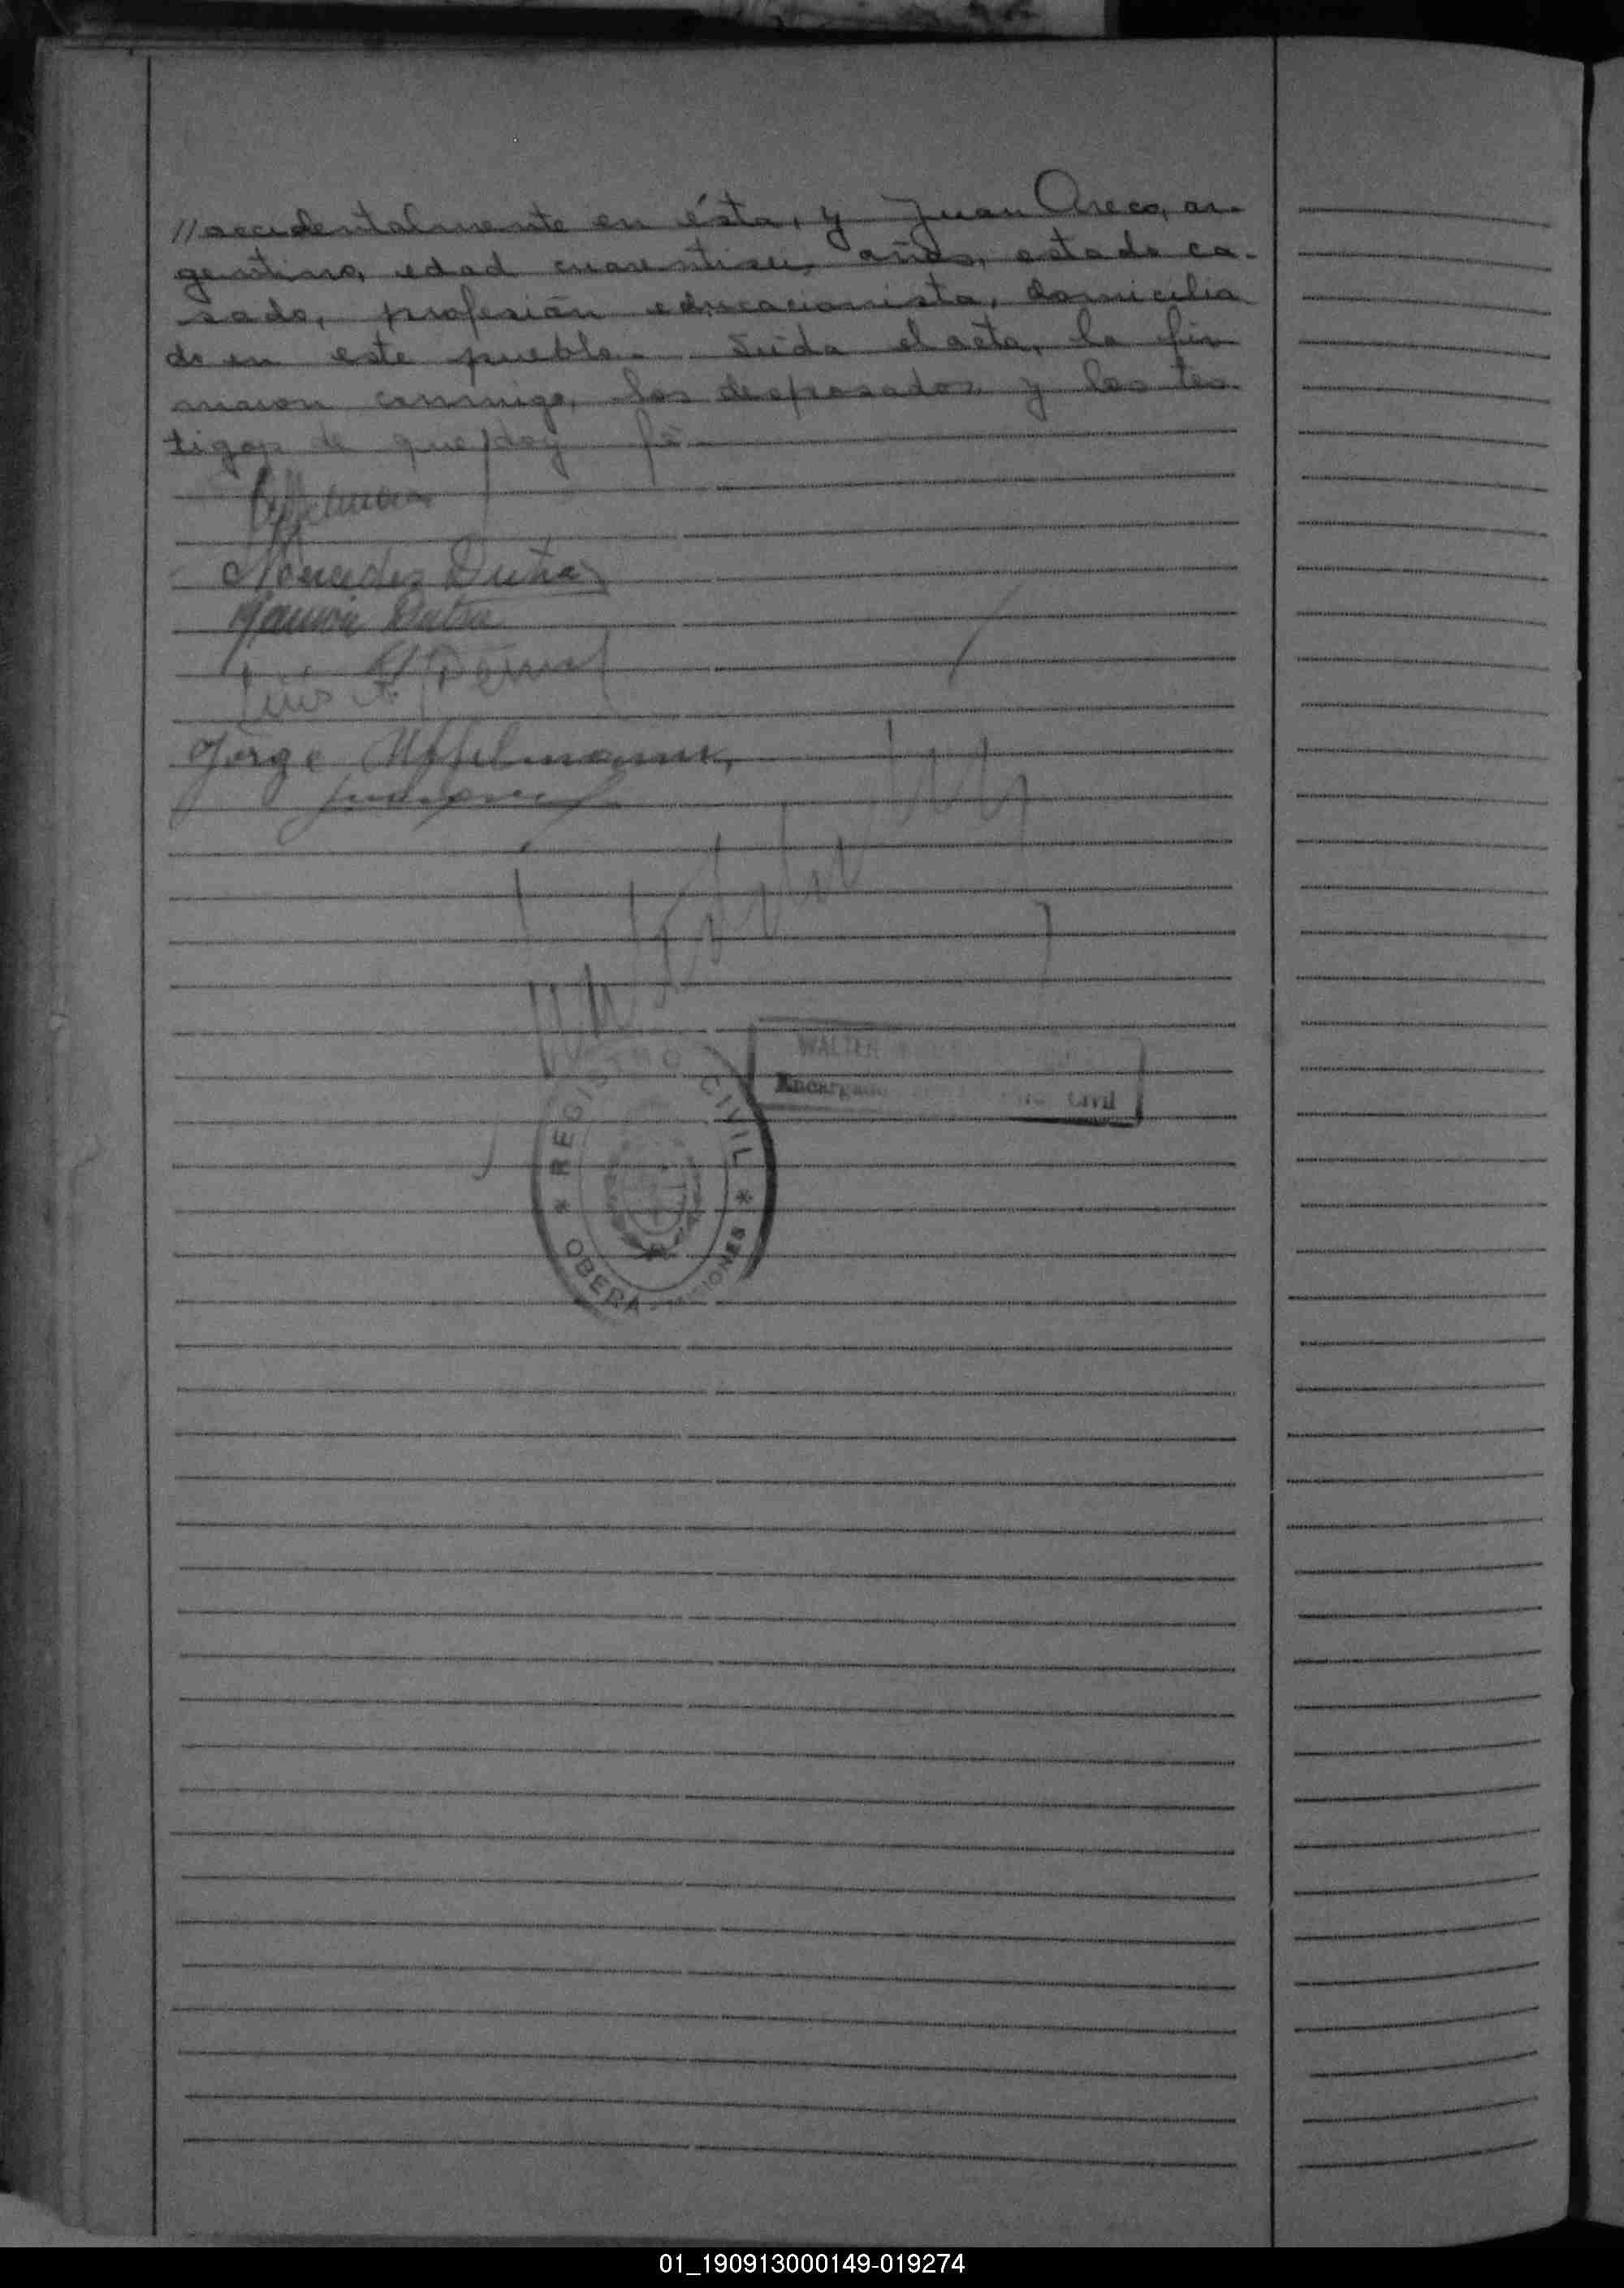 //accidentalmente en ésta, y Juan Areco, ar-
gentino, edad cuarentiseis años, estado ca-
sado, profesión educacionista, domicilia
do en este pueblo. Leida el acta, la fir
maron conmigo, los desposados y los tes
tigos de que doy fé.
Mercedes Dutra
Dutra
Luis A.
Jorge Uffelmann
WALTER
Encargado Civil
* REGISTRO CIVIL *
OBERA MISIONES
01_190913000149-019274